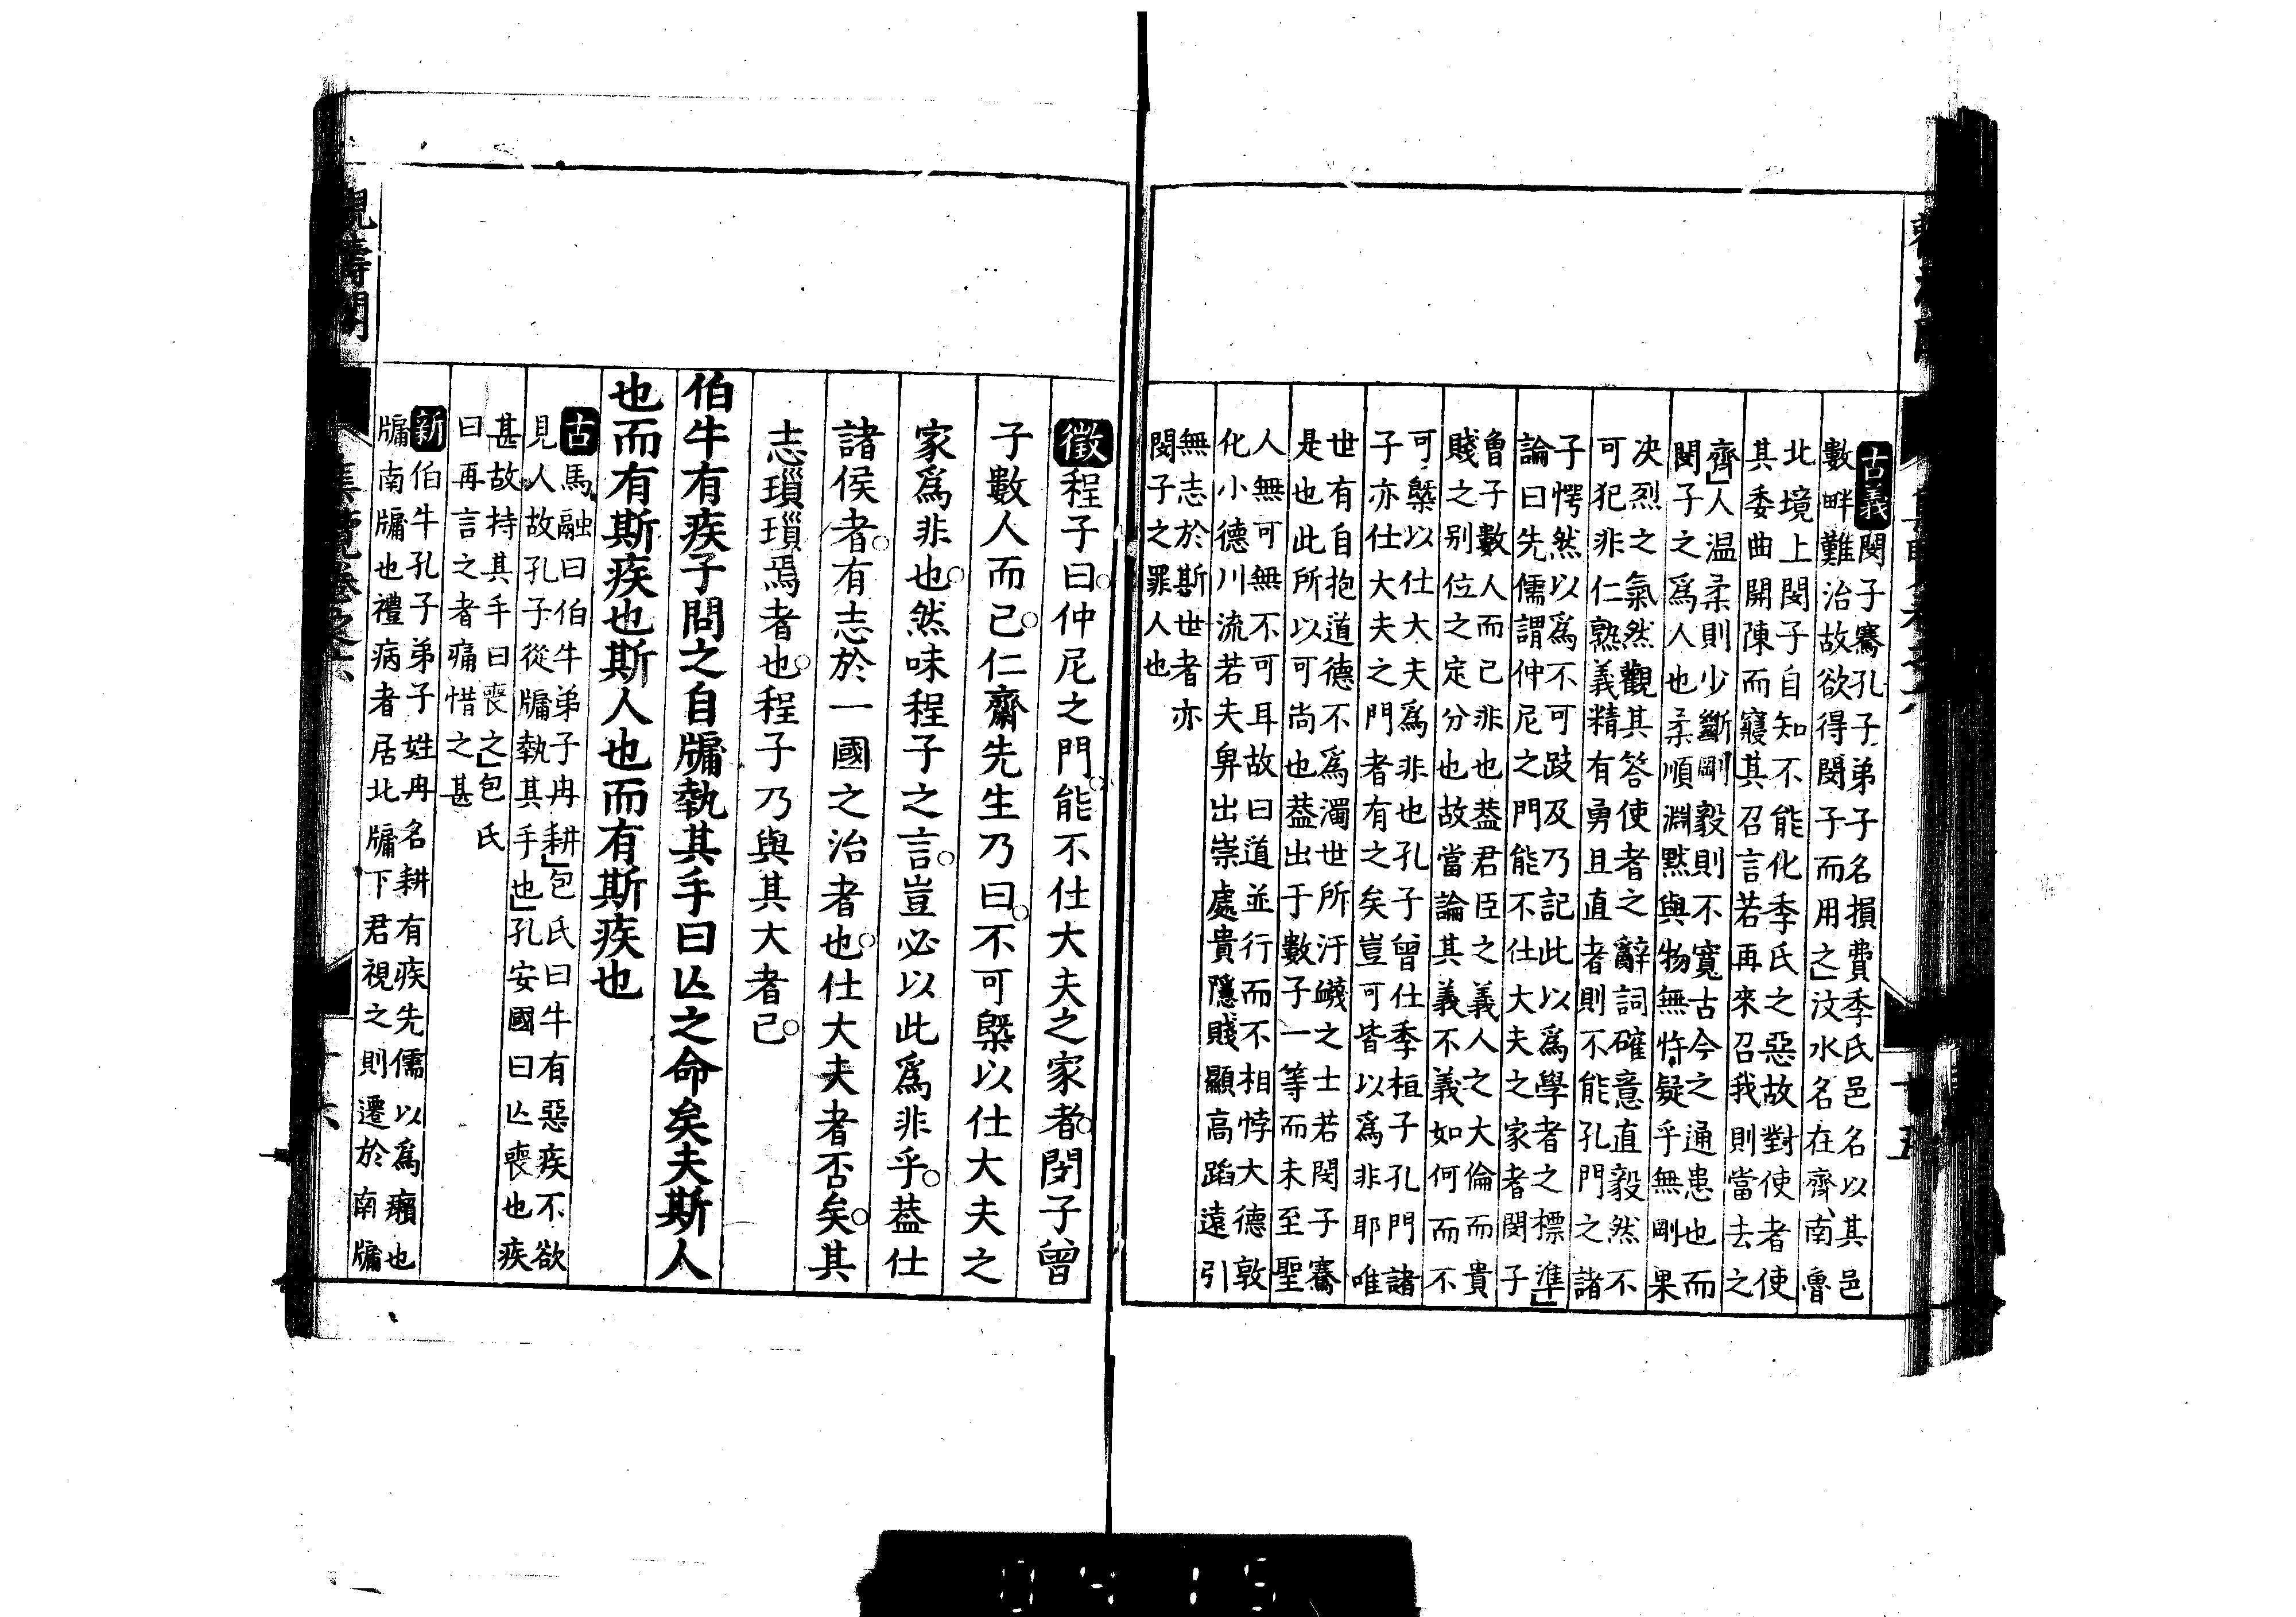 古義閔子騫孔子弟子名損費季氏邑名以其邑
數畔難治故欲得閔子而用之汶水名在齊南魯
北境上閔子自知不能化季氏之惡故對使者使
其委曲開陳而寢其召言若再來召我則當去之
齊人温柔則少斷剛毅則不寬古今之通患也而
閔子之爲人也柔順淵默與物無忤疑乎無剛果
决烈之氣然觀其答使者之辭詞確意直毅然不
可犯非仁熟義精有勇且直者則不能孔門之諸
子愕然以爲不可跂及乃記此以爲學者之標準
論曰先儒謂仲尼之門能不仕大夫之家者閔子
曾子數人而已非也葢君臣之義人之大倫而貴
賤之別位之定分也故當論其義不義如何而不
可槩以仕大夫爲非也孔子曾仕季桓子孔門諸
子亦仕大夫之門者有之矣豈可皆以爲非耶唯
世有自抱道德不爲濁世所汙衊之士若閔子騫
是也此所以可尚也葢出于數子一等而未至聖
人無可無不可耳故曰道並行而不相悖大德敦
化小德川流若夫卑出崇處貴隱賤顯高蹈遠引
無志於斯世者亦
閔子之罪人也
徵程子曰仲尼之門能不仕大夫之家者閔子曾
子數人而已仁齋先生乃曰不可槩以仕大夫之
家爲非也然味程子之言豈必以此爲非乎葢仕
諸侯者有志於一國之治者也仕大夫者否矣其
志瑣瑣焉者也程子乃與其大者已
伯牛有疾子問之自牖執其手曰亾之命矣夫斯人
也而有斯疾也斯人也而有斯疾也
古馬融曰伯牛弟子冉耕包氏曰牛有惡疾不欲
見人故孔子從牖執其手也孔安國曰亾喪也疾
甚故持其手曰喪之包氏
曰再言之者痛惜之甚
新伯牛孔子弟子姓冉名耕有疾先儒以爲癩也
牖南牖也禮病者居北牖下君視之則遷於南牖